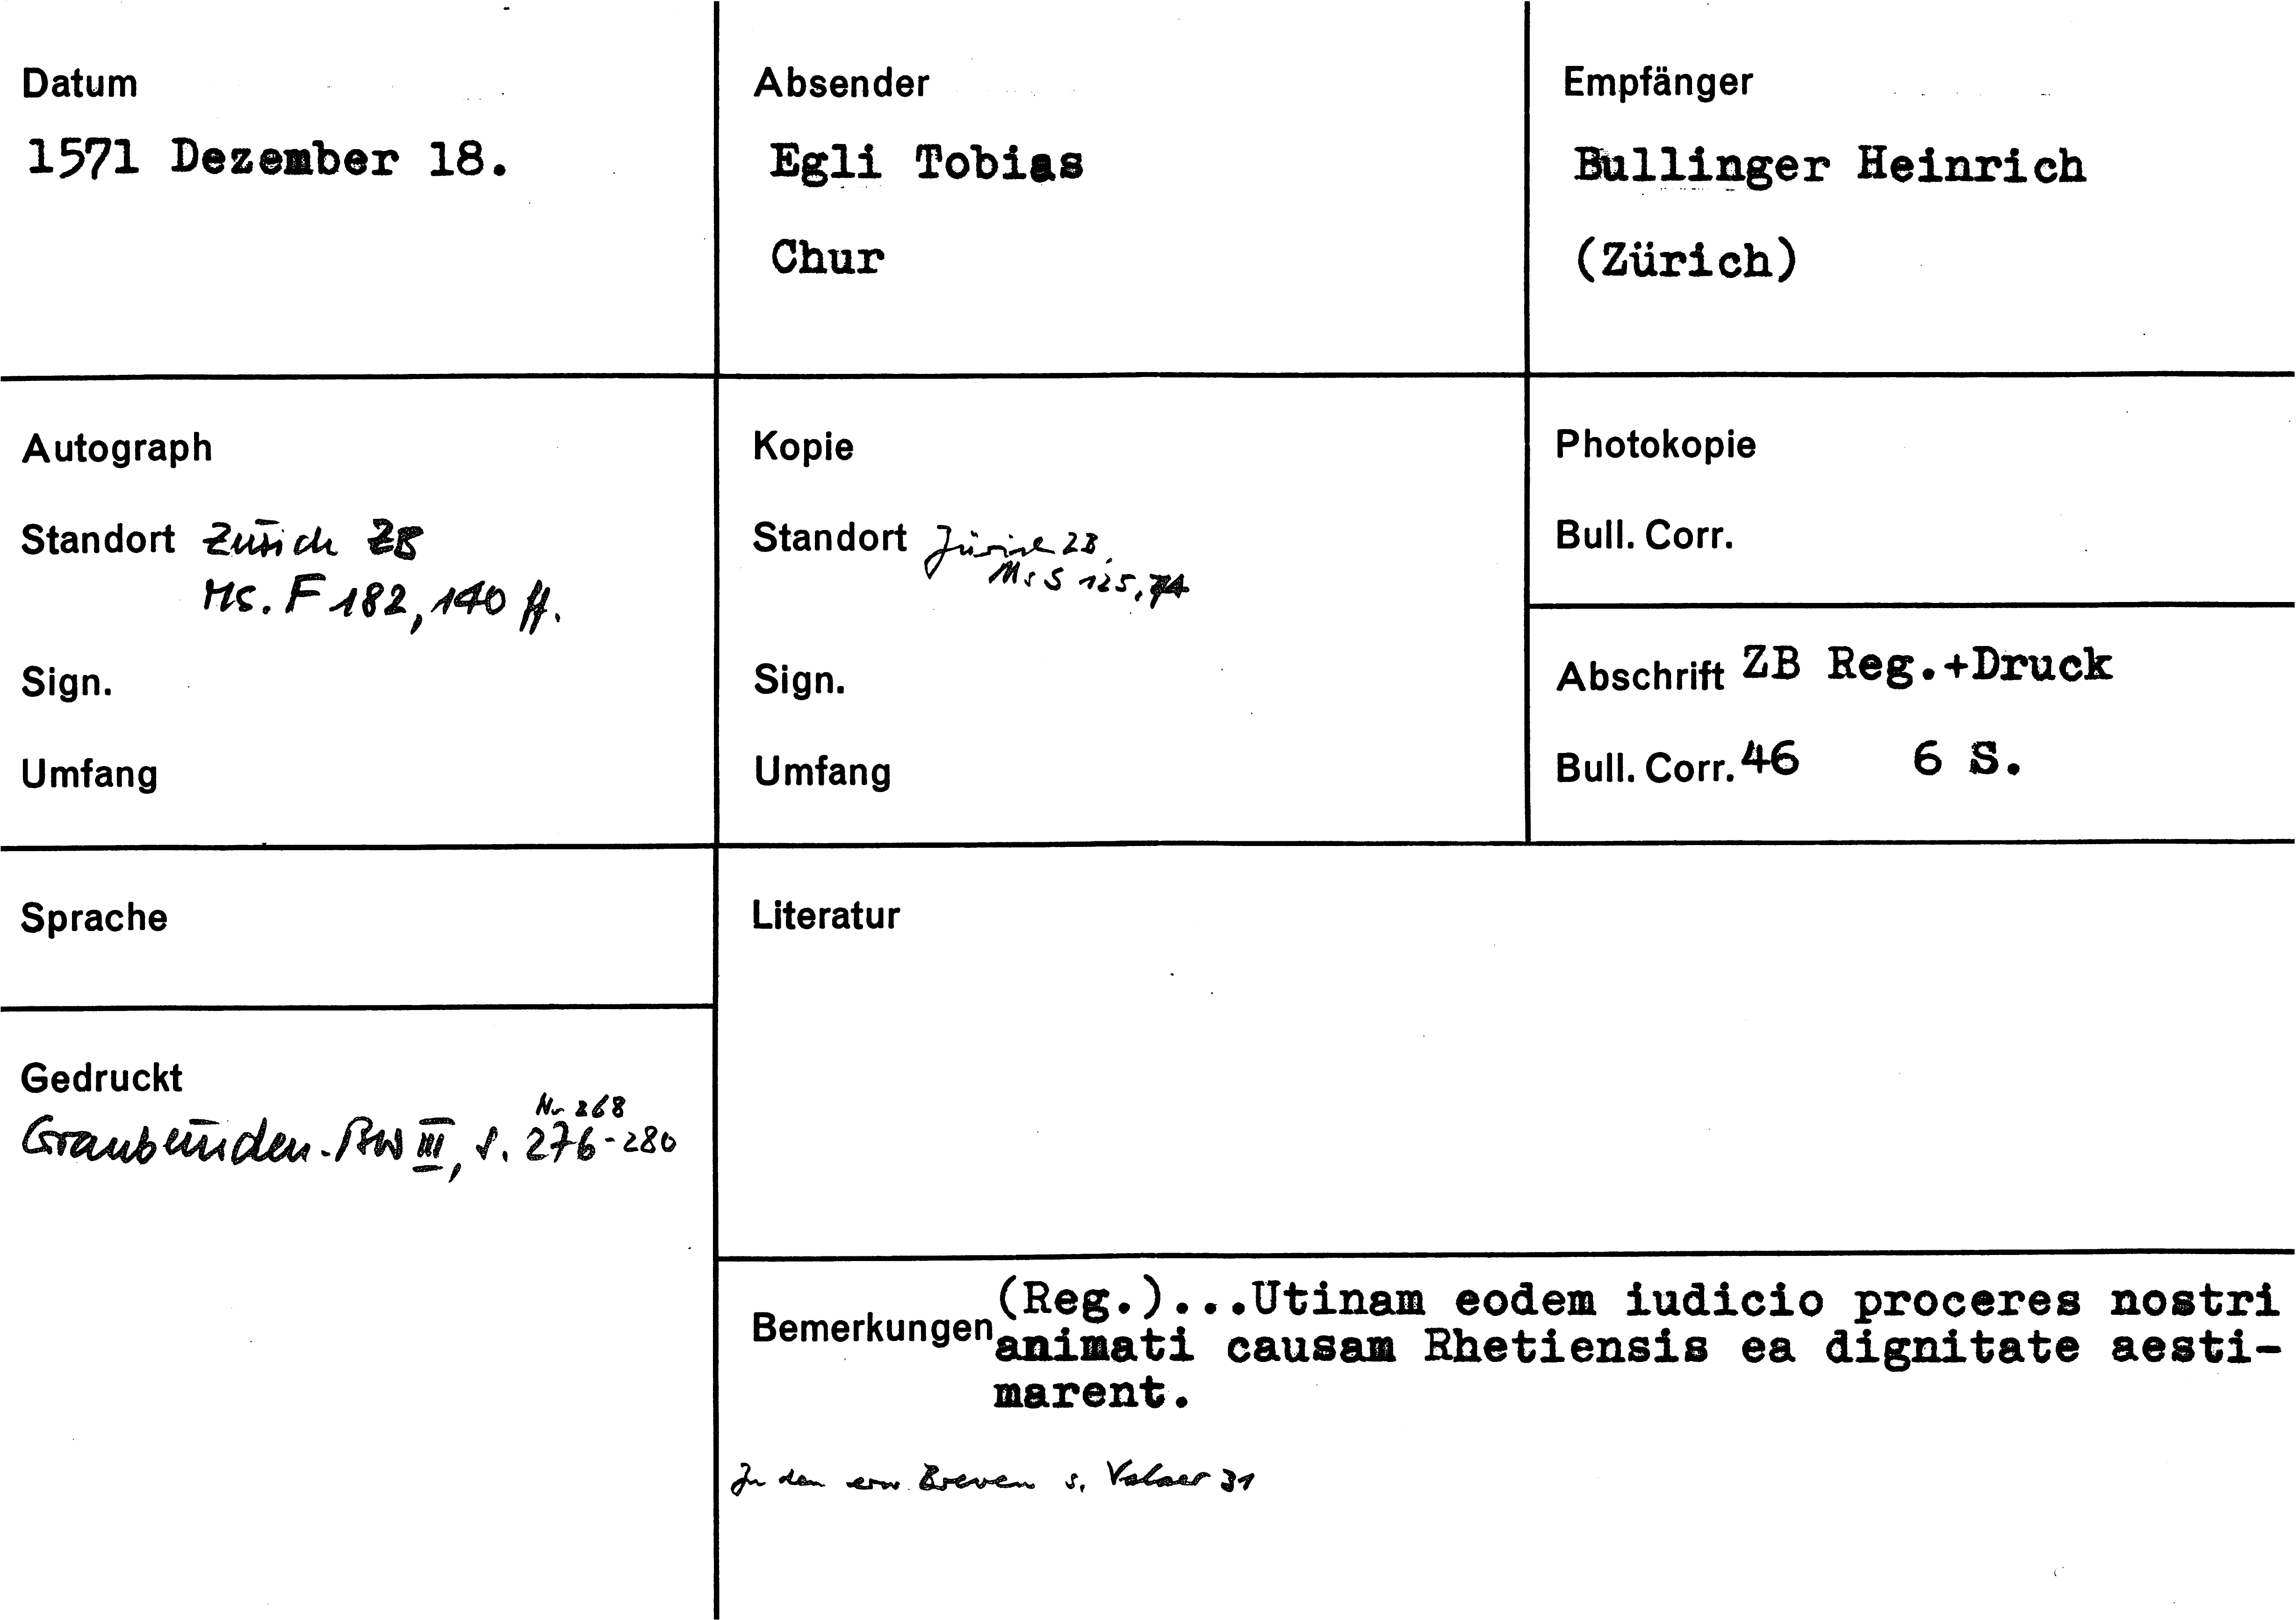 Datum
1571 Dezember 18.
Absender
Egli Tobias
Chur
Empfänger
Bullinger Heinrich
(Zürich)
Autograph
Standort Zürich ZB
Ms. F 182, 140 ff.
Sign.
Umfang
Kopie
Standort Zürich ZB,
Ms S 125, 74
Sign.
Umfang
Photokopie
Bull. Corr.
Abschrift ZB Reg.+Druck
Bull. Corr. 46 6 S.
Sprache
Literatur
Gedruckt
Nr 268
Graubünden. BW III, S. 276-280
Bemerkungen (Reg.)...Utinam eodem iudicio proceres nostri
animati causam Rhetiensis ea dignitate aesti-
marent.
Zu den erw. Breven s. Valaer 31